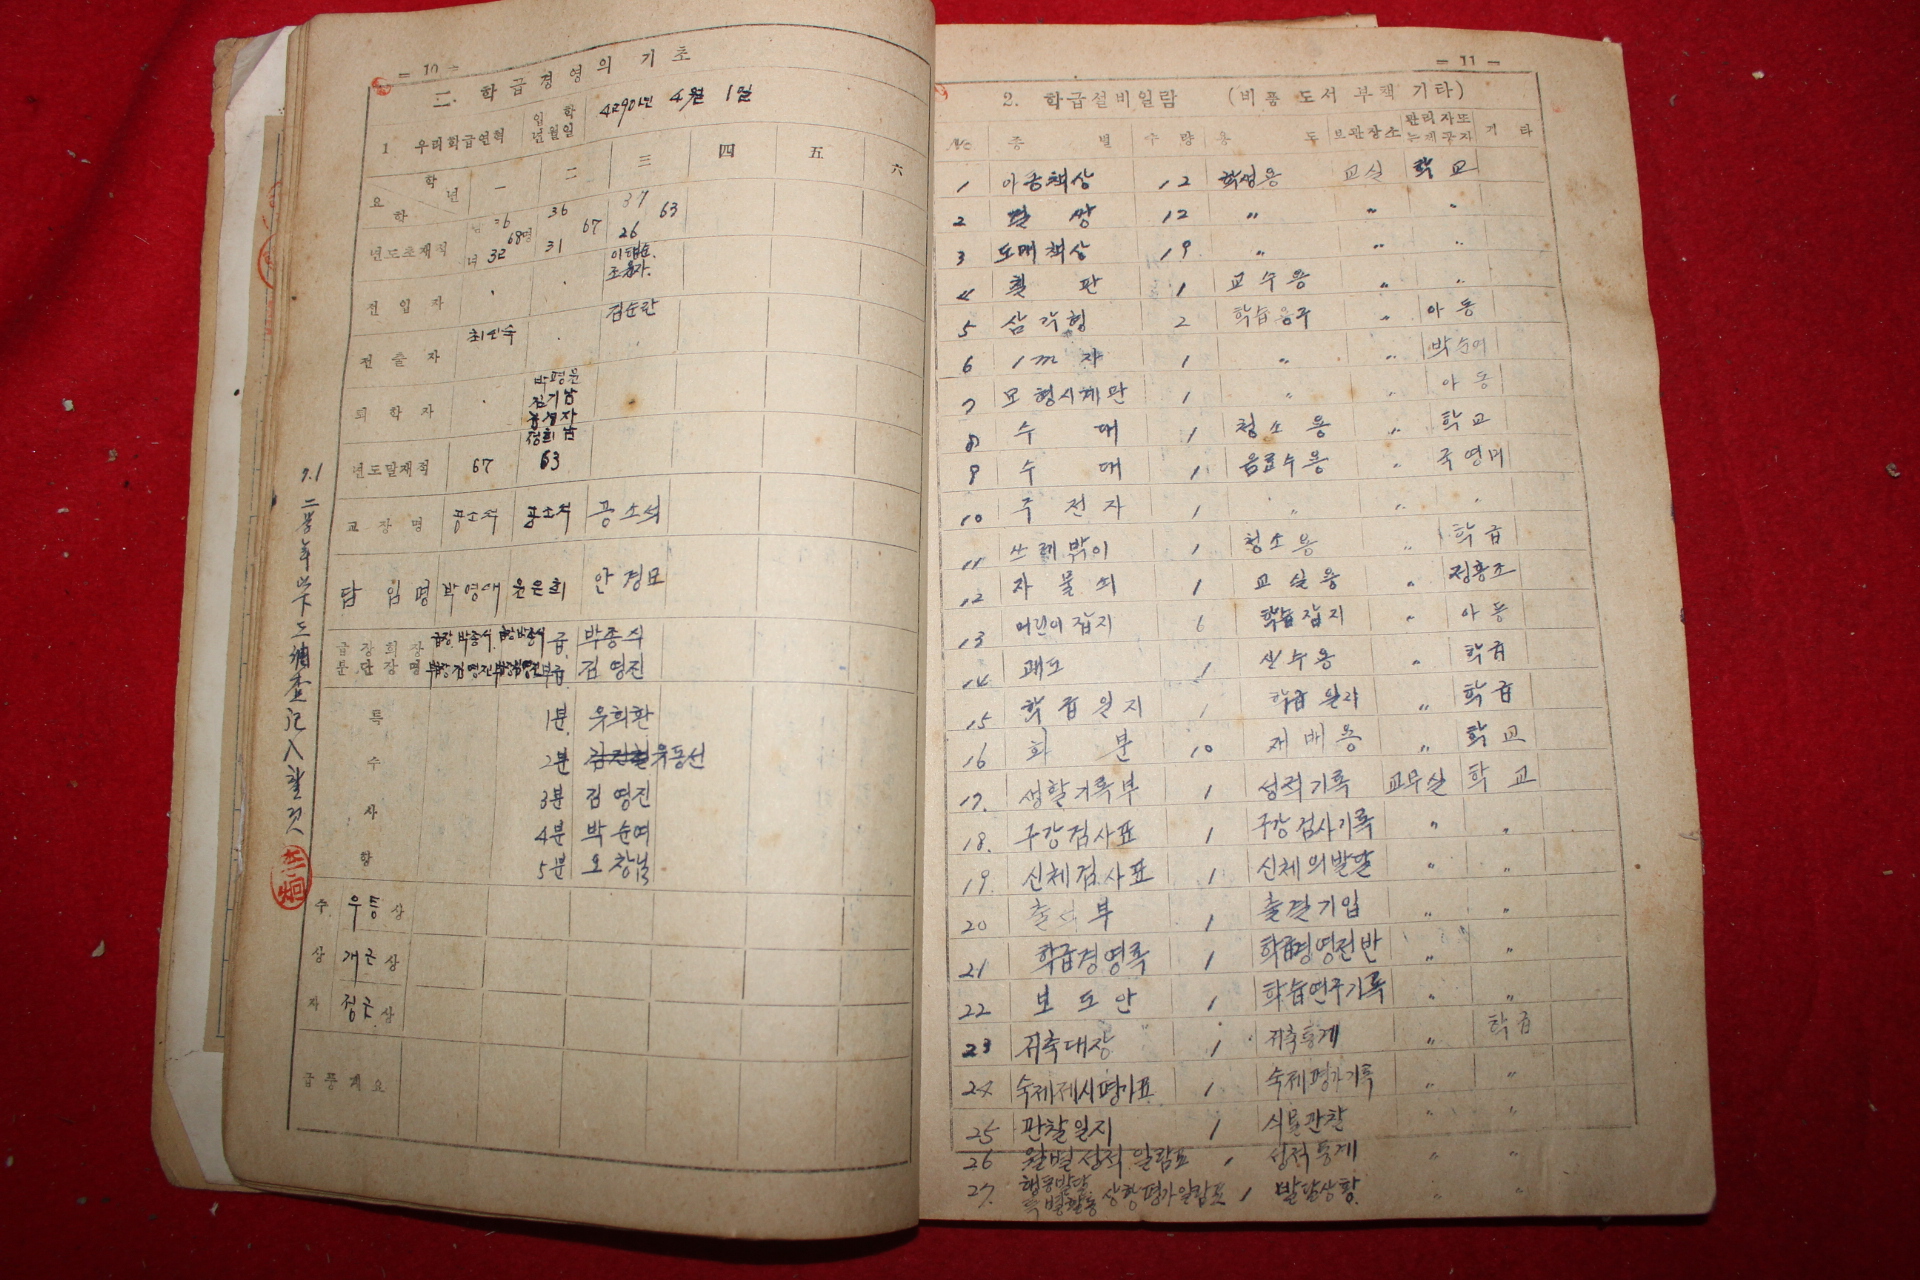 — 10 —
二. 학급경영의 기초
1 우리학급연혁 입학년월일 4290年 4월 1일
학년 一 二 三 四 五 六
요학
년도초재적 남 36 68명 녀 32 36 67 31 37 63 26
전입자 이태순. 조용자.
전출자 최인숙 김순란
퇴학자 박평운 김기남 정희남
년도말재적 67 63
교장명 공소석 공소석 공소석
담임명 박영애 윤은희 안경모
급장회장 급장 박종식 급 박종식
분단장명 부급장 김영진 부급 김영진
특수사항
1분. 우희환
2분 유동선
3분 김영진
4분 박순여
5분 오창남
수상자
우등상
개근상
정근상
급풍개요
7.1 二학年以下도 調査記入할것
— 11 —
2. 학급설비일람 (비품 도서 부책 기타)
№ 종별 수량 용도 보관장소 관리자또는책공자 기타
1 아동책상 12 학생용 교실 학교
2 걸상 12 〃 〃 〃
3 도매책상 19 〃 〃 〃
4 칠판 1 교수용 〃 〃
5 삼각형 2 학습용구 〃 아동
6 1m자 1 〃 〃 박순여
7 모형시계판 1 〃 〃 아동
8 수대 1 청소용 〃 학교
9 수대 1 음료수용 〃 국영미
10 주전자 1 〃 〃 〃
11 쓰레밖이 1 청소용 〃 학급
12 자물쇠 1 교실용 〃 정홍조
13 어린이잡지 6 학습잡지 〃 아동
14 괘도 1 〃 학급
15 학급일지 1 학급일지 〃 학급
16 화분 10 재배용 〃 학교
17. 생활기록부 1 성적기록 교무실 학교
18. 구강검사표 1 구강검사기록 〃 〃
19. 신체검사표 1 신체의발달 〃 〃
20 출석부 1 출결기입 〃 〃
21 학급경영록 1 학급경영전반 〃 〃
22 보도안 1 학습연구기록 〃 〃
23 저축대장 1 저축통계 〃 학급
24 숙제제시평가표 1 숙제평가기록 〃 〃
25 관찰일지 1 식물관찰 〃 〃
26 월별성적일람표 1 성적통계 〃 〃
27. 행동발달 특별활동 상황평가일람표 1 발달상황. 〃 〃